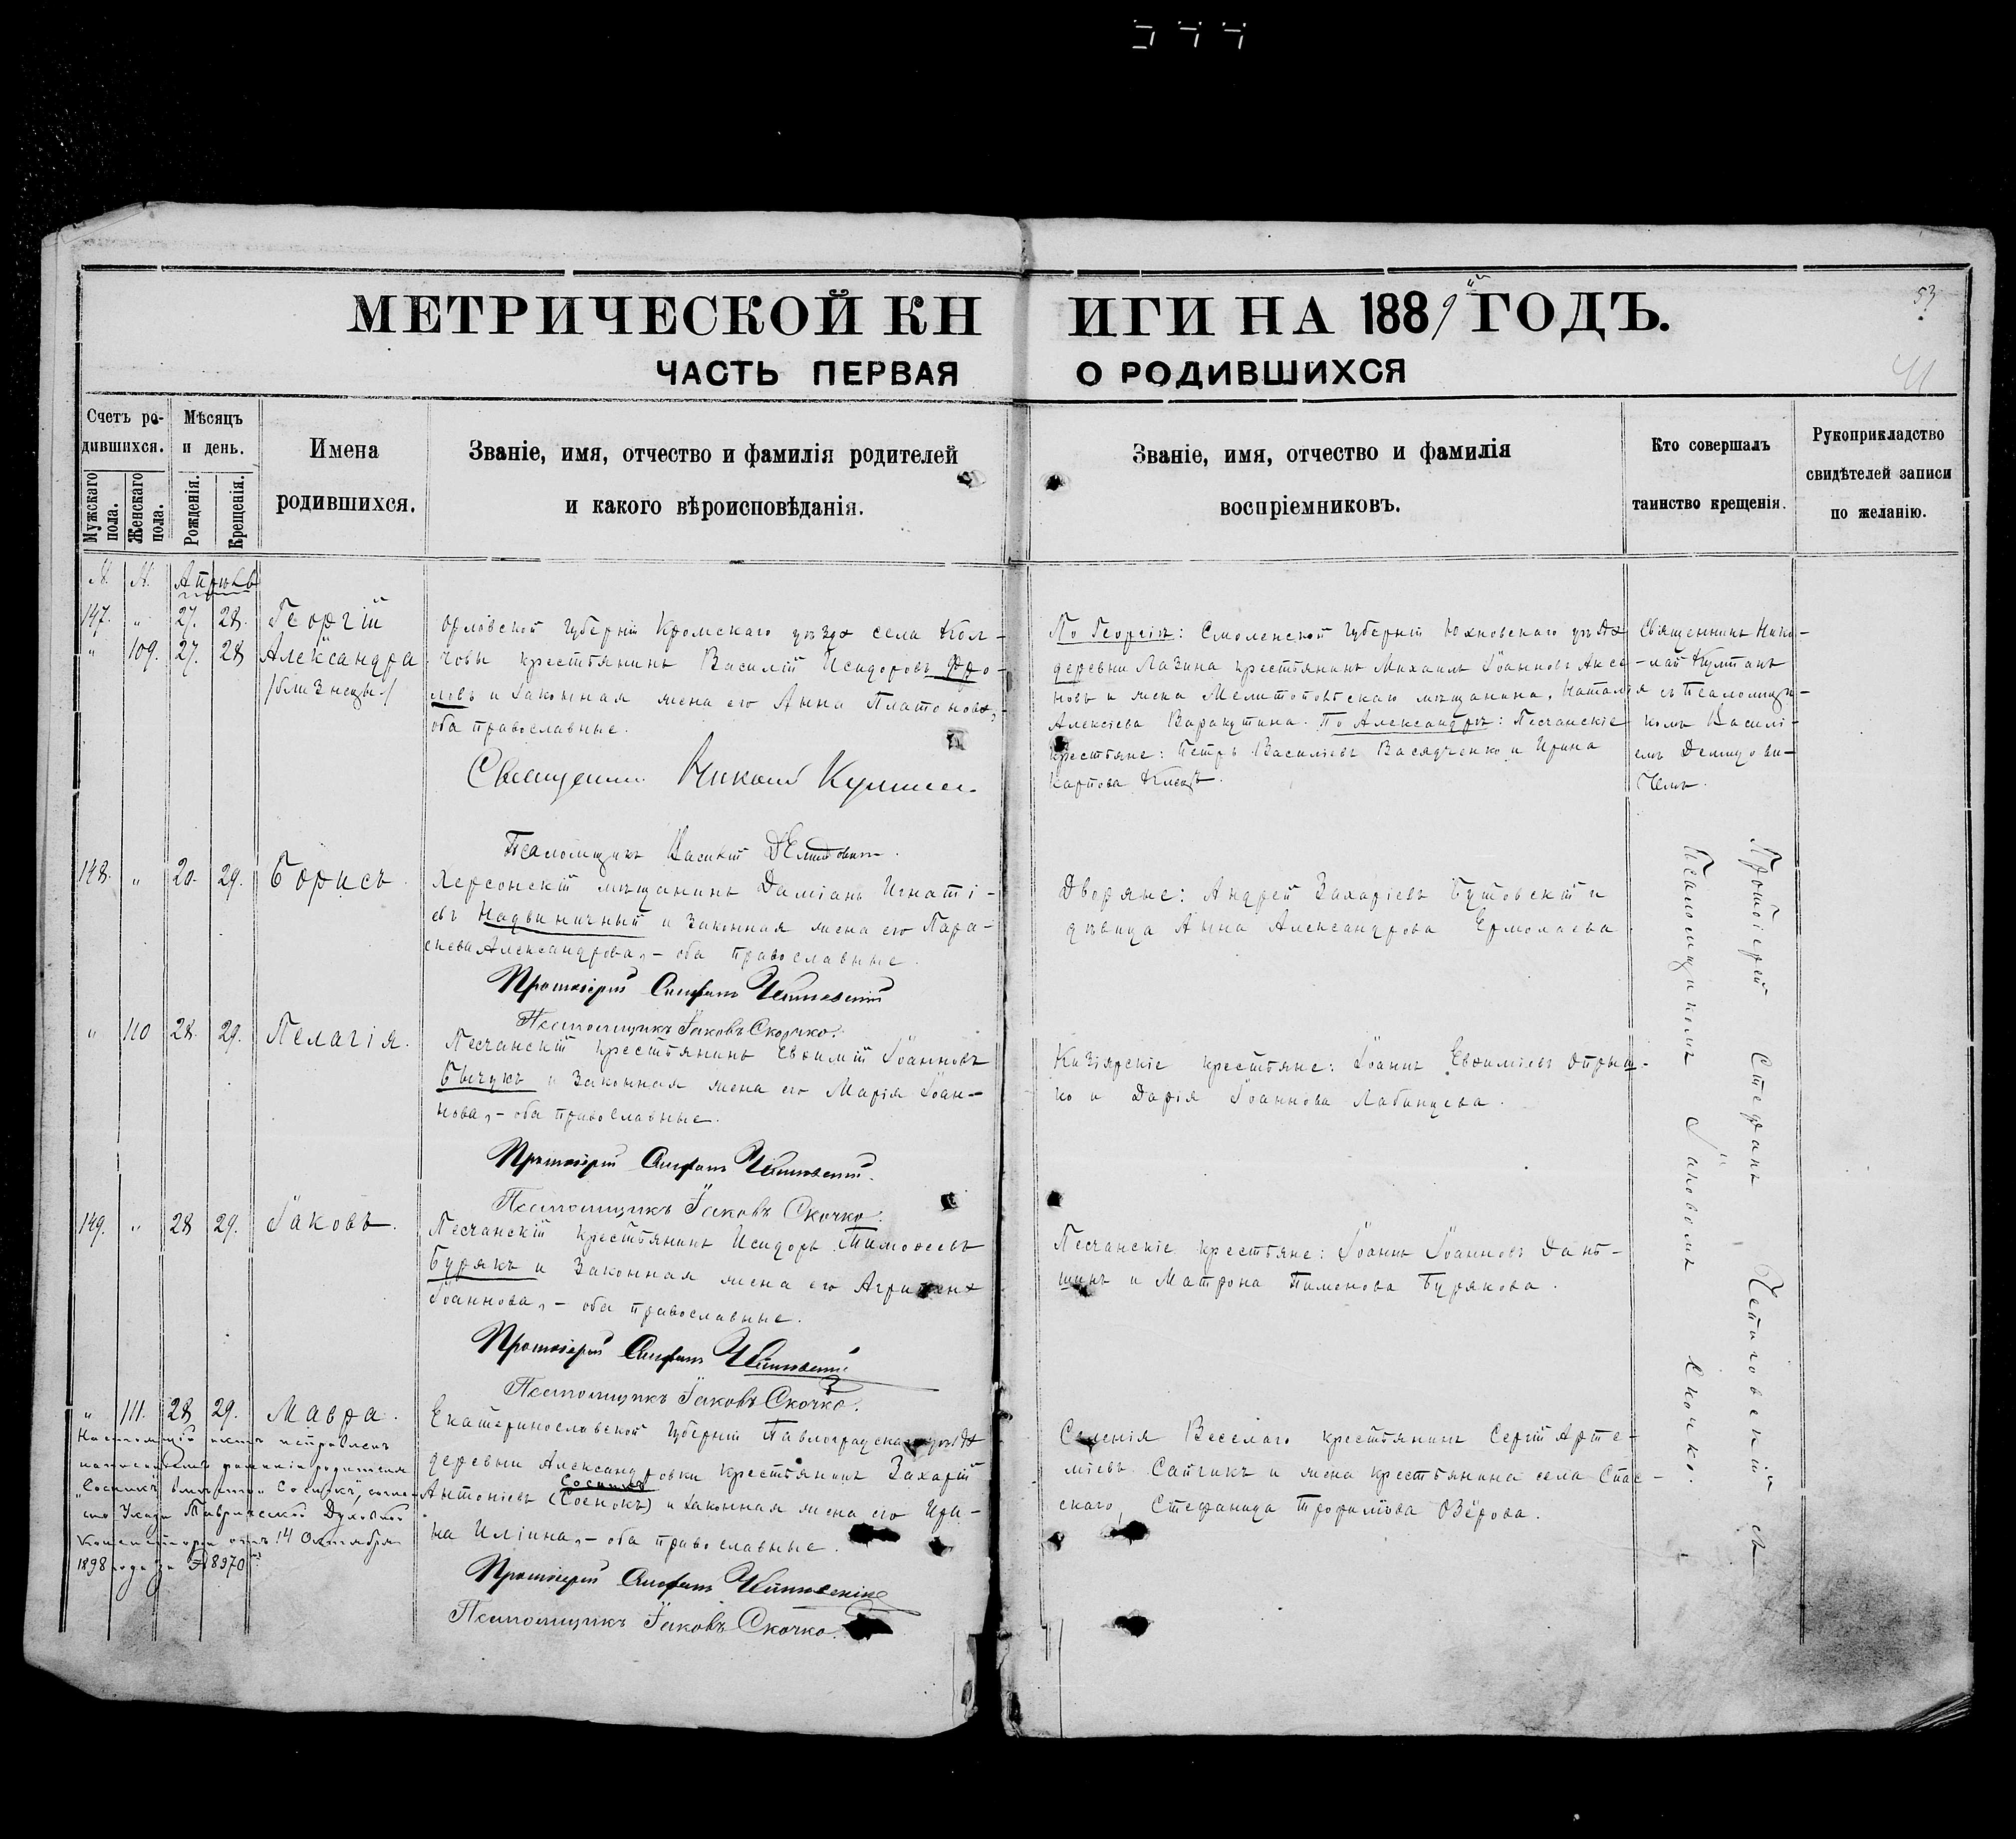 544
МЕТРИЧЕСКОЙ КНИГИ НА 1889й ГОДЪ.
53
41
ЧАСТЬ ПЕРВАЯ О РОДИВШИХСЯ
Счетъ родившихся.
Мужскаго пола.
Женскаго пола.
Мѣсяцъ и день.
Рожденія.
Крещенія.
Имена родившихся.
Званіе, имя, отчество и фамилія родителей
и какого вѣроисповѣданія.
Званіе, имя, отчество и фамилія
воспріемниковъ.
Кто совершалъ
таинство крещенія.
Рукоприкладство
свидѣтелей записи
по желанію.
М. Ж. Апрѣль
147. " 27. 28. Георгій
" 109. 27. 28 Александра
/близнецы/
Орловской губерніи Кромскаго уѣзда села
крестьянинъ Василій Исидоровъ Фро-
ловъ и законная жена его Анна Платонова,-
оба православные.
Священникъ Николай
Псаломщикъ Василій Демидовичъ.
По Георгіѣ: Смоленской губерніи Юхновскаго уѣзда
деревни Лазина крестьянинъ Михаилъ Іоанновъ Аксе-
новъ и жена Мелитопольскаго мѣщанина, Наталія
Алексіева Варакутина. По Александрѣ: Песчанскіе
крестьяне: Петръ Василіевъ Васядченко и Ирина
Карпова
Священникъ Нико-
лай
съ Псаломщи-
комъ Василі-
емъ Демидови-
чемъ.
148. " 20. 29. Борисъ.
Херсонскій мѣщанинъ Даміанъ Игнаті-
евъ Надвиничный и законная жена его Пара-
скева Александрова,- оба православные.
Протоіерей Стефанъ
Псаломщикъ Іаковъ Скочко.
Дворяне: Андрей Захаріевъ Бутовскій и
дѣвица Анна Александрова Ермолаева
" 110 28. 29. Пелагія.
Песчанскій крестьянинъ Евѳимій Іоанновъ
Бычукъ и законная жена его Марія Іоан-
нова,- оба православные.
Протоіерей Стефанъ
Псаломщикъ Іаковъ Скочко.
крестьяне: Іоаннъ Евѳиміевъ Отрыш-
ко и Дарія Іоаннова Лабинцева.
149. " 28 29. Іаковъ.
Песчанскій крестьянинъ Исидоръ Тимоѳеевъ
Бурякъ и законная жена его Агрипина
Іоаннова,- оба православные.
Протоіерей Стефанъ
Псаломщикъ Іаковъ Скочко.
Песчанскіе крестьяне: Іоаннъ Іоанновъ Дань-
шинъ и Матрона Пименова Бурякова.
" 111. 28 29. Мавра.
Екатеринославской губерніи Павлоградскаго уѣзда
деревни Александровки крестьянинъ Захарій
Сосникъ
Антоніевъ (Соснокъ) и законная жена его Ири-
на Иліина,- оба православные.
Протоіерей Стефанъ
Псаломщикъ Іаковъ Скочко.
Селенія Веселаго крестьянинъ Сергій Арте-
міевъ Сайчикъ и жена крестьянина села Спас-
скаго, Стефанида Трофимова Озёрова.
Настоящій актъ исправленъ
"Сосникъ" вмѣсто "Соснокъ", согла-
сно Указа Таврической Духовной
Консисторіи отъ 14 Октября
1898 года за № 8970.
Протоіерей Стефанъ съ
Псаломщикомъ Іаковомъ Скочко.